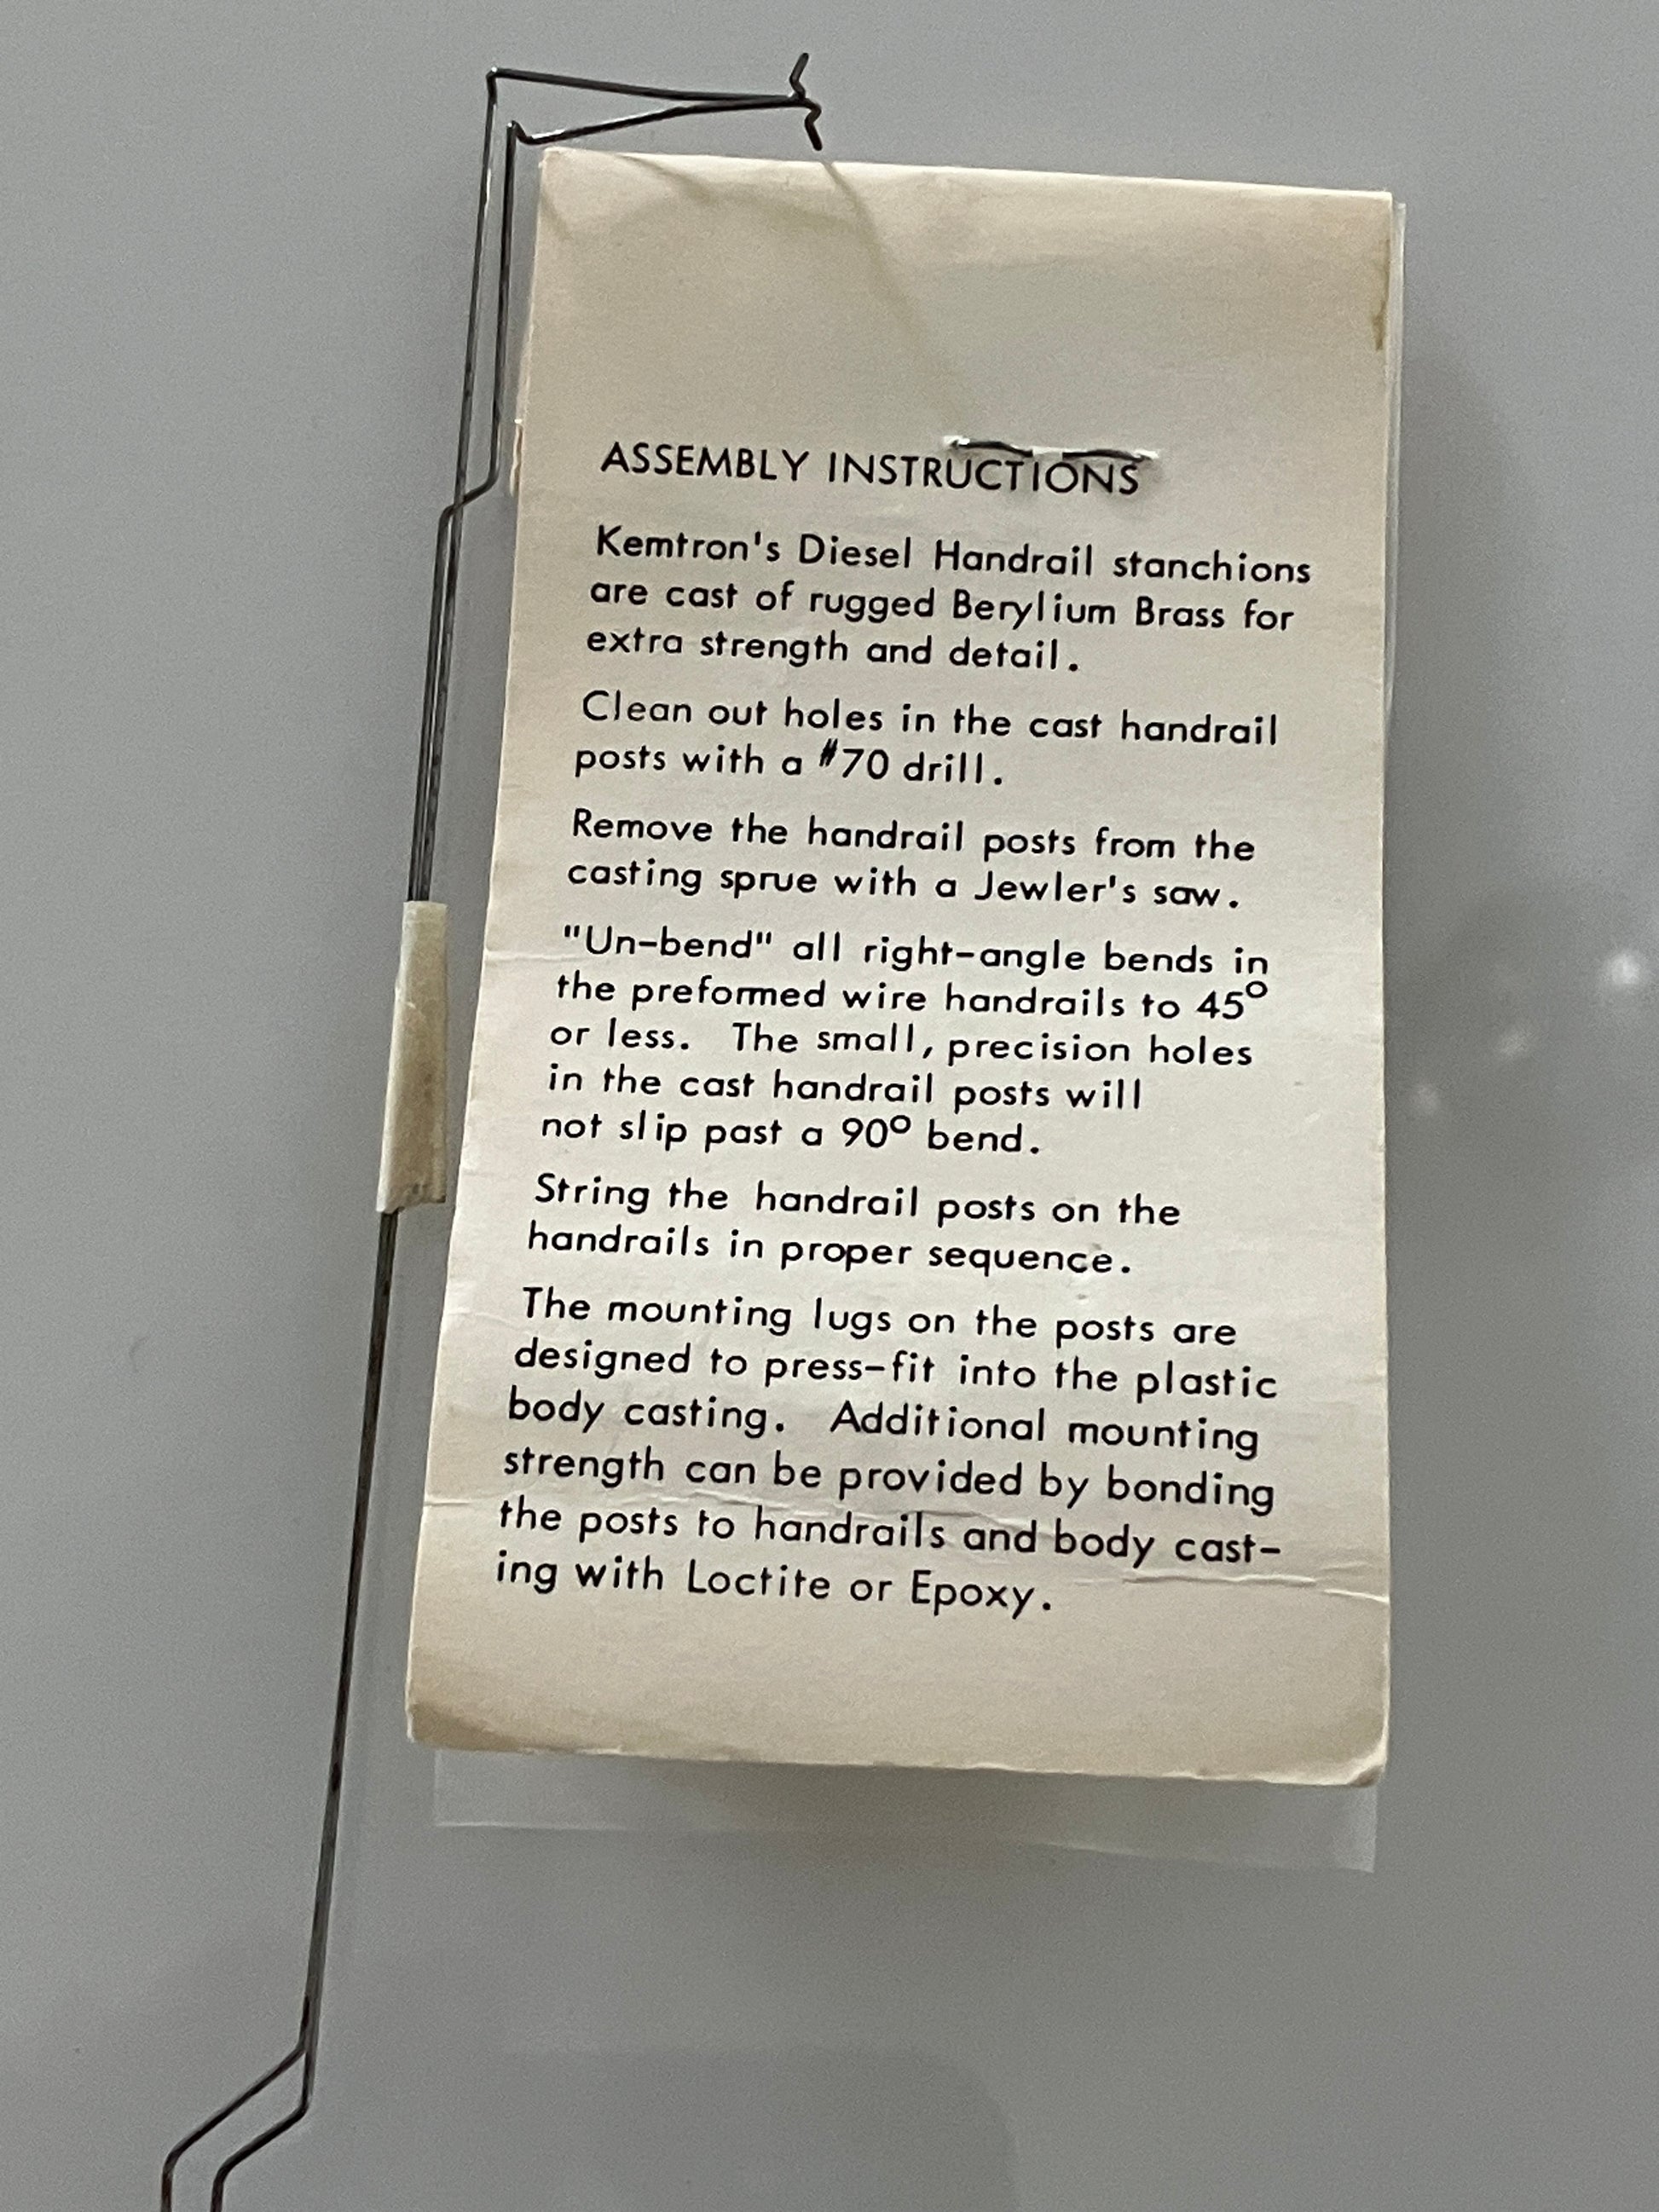 ASSEMBLY INSTRUCTIONS
Kemtron's Diesel Handrail stanchions
are cast of rugged Berylium Brass for
extra strength and detail.
Clean out holes in the cast handrail
posts with a #70 drill.
Remove the handrail posts from the
casting sprue with a Jewler's saw.
"Un-bend" all right-angle bends in
the preformed wire handrails to 45°
or less. The small, precision holes
in the cast handrail posts will
not slip past a 90° bend.
String the handrail posts on the
handrails in proper sequence.
The mounting lugs on the posts are
designed to press-fit into the plastic
body casting. Additional mounting
strength can be provided by bonding
the posts to handrails and body cast-
ing with Loctite or Epoxy.